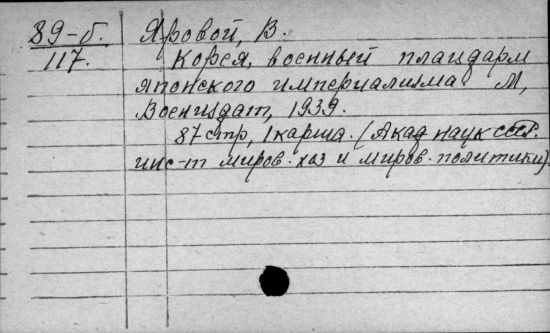 89-б. Яровой, В.
117. Корея, военный плацдарм
японского империализма М,
Воениздат, 1939.
87 стр, 1 карта. (Акад наук СССР.
инс-т миров. хоз и миров. политики)